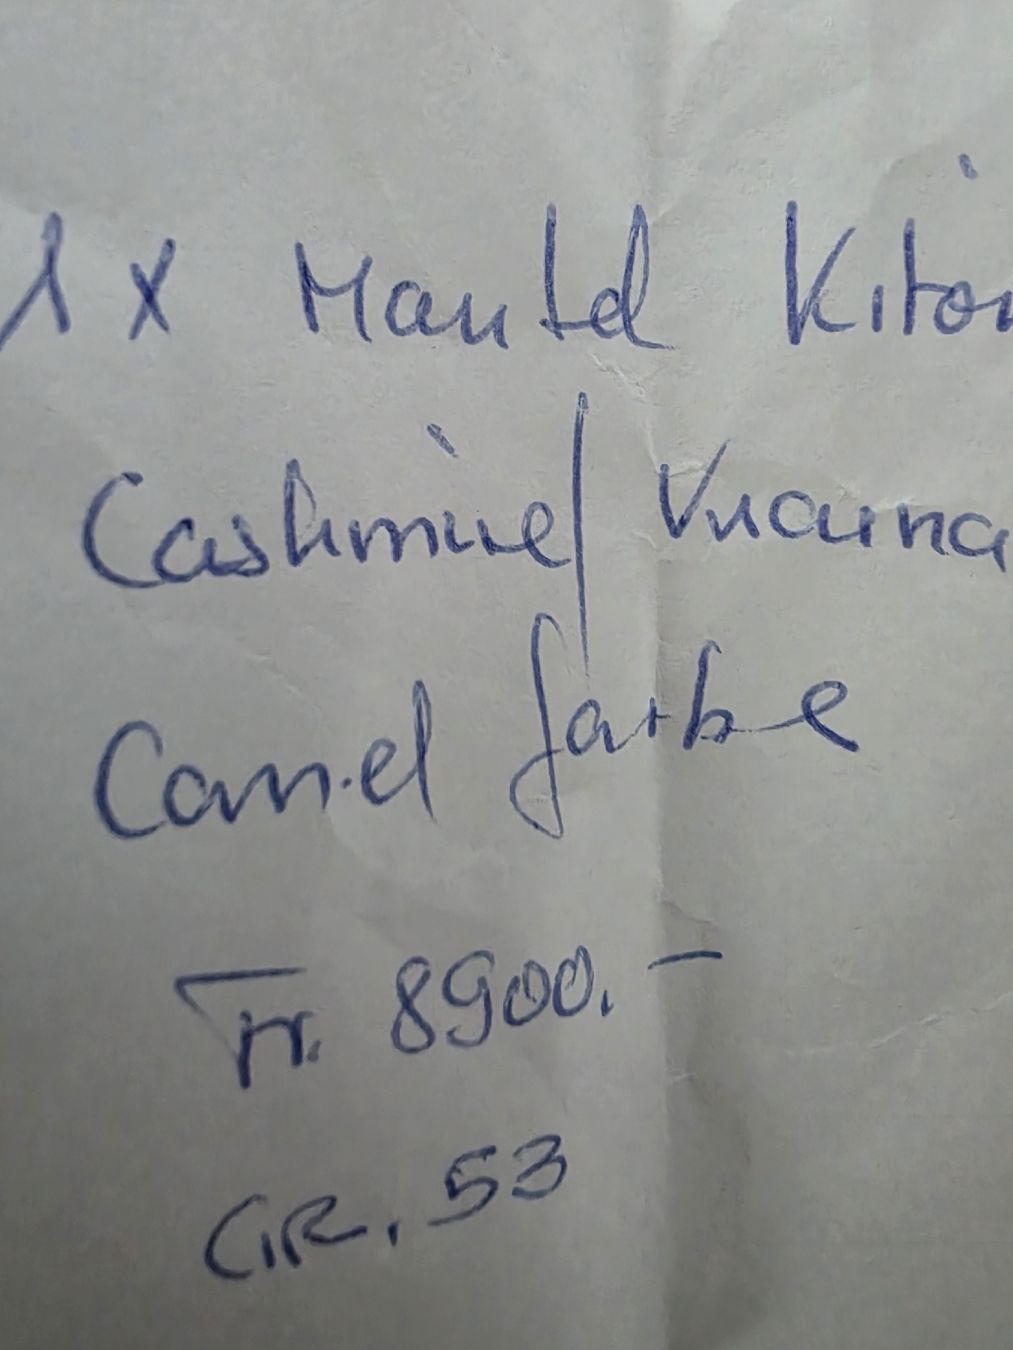 1 x Mantel Kiton
Cashmire/ Vicuna
Camel farbe
Fr. 8900.–
GR. 53